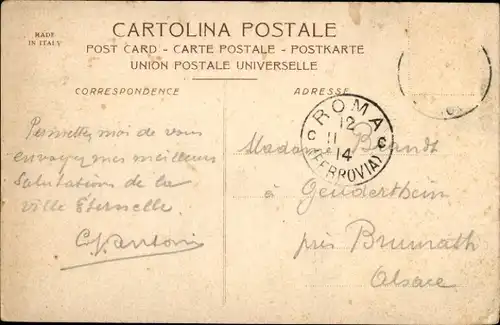 MADE
IN ITALY
CARTOLINA POSTALE
POST CARD - CARTE POSTALE - POSTKARTE
UNION POSTALE UNIVERSELLE
CORRESPONDENCE
ADRESSE
ROMA
12
11
14
(FERROVIA)
C C
Permettez moi de vous
envoyer mes meilleurs
Salutations de la
ville Eternelle
Madame Brandt
à Geudertheim
près Brumath
Alsace